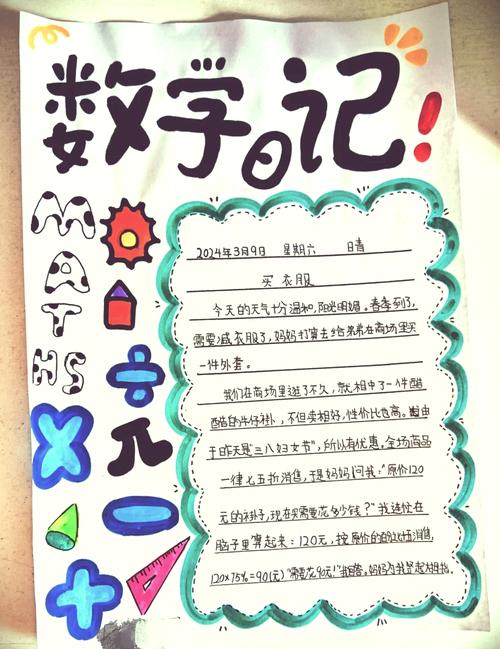 数学日记!
MATHS
2024年3月9日 星期六 晴
买衣服
今天的天气十分温和,阳光明媚。春季到了,
需要减衣服了,妈妈打算去给弟弟在商场里买
一件外套。
我们在商场里逛了不久,就相中了一件酷
酷的牛仔褂,不但卖相好,性价比也高。由
于昨天是"三八妇女节",所以有优惠。全场商品
一律七五折消售,于是妈妈问我:"原价120
元的褂子,现在买需要花多少钱?"我连忙在
脑子里算起来:120元,按原价的七五消售,
120×75%=90(元)"需要花90元!"我回答。妈妈为我竖起大拇指。